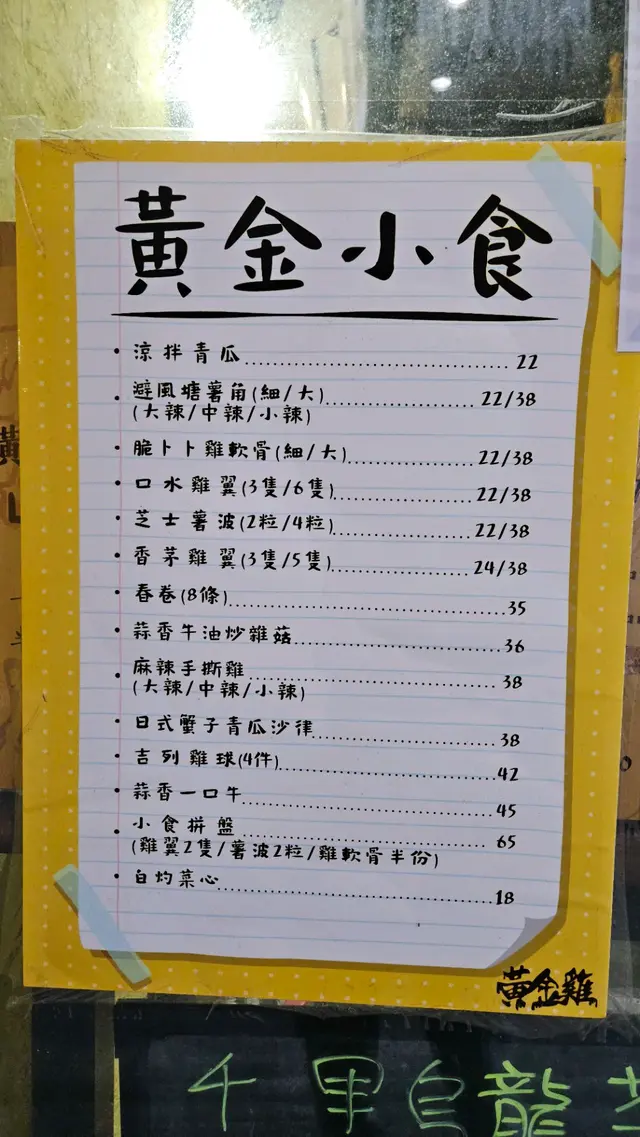 黃金小食
• 涼拌青瓜..........22
• 避風塘薯角(細/大)..........22/38
(大辣/中辣/小辣)
• 脆卜卜雞軟骨(細/大)..........22/38
• 口水雞翼(3隻/6隻)..........22/38
• 芝士薯波(2粒/4粒)..........22/38
• 香茅雞翼(3隻/5隻)..........24/38
• 春卷(8條)..........35
• 蒜香牛油炒雜菇..........36
• 麻辣手撕雞..........38
(大辣/中辣/小辣)
• 日式蟹子青瓜沙律..........38
• 吉列雞球(4件)..........42
• 蒜香一口牛..........45
• 小食拼盤..........65
(雞翼2隻/薯波2粒/雞軟骨半份)
• 白灼菜心..........18
黃金雞
千里烏龍